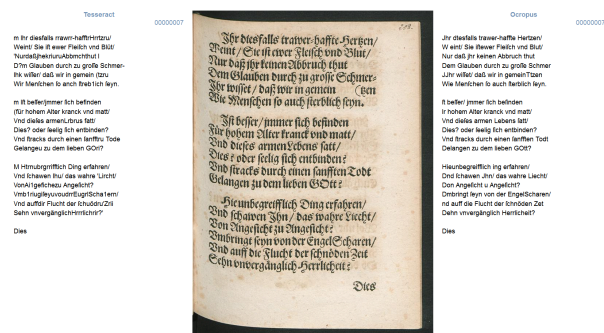 Tesseract
00000007
m Ihr diesfalls rrawrr-hafftrHrrtzru/
Weint/ Sie iſt ewer Fleiſch vnd Blüt/
NurdaßjhkriruruAbbmchthut I
D?m Glauben durch zu große Schmer-
Ihk wiſſet/ daß wir in gemein (tzru
Wir Menſchen ſo auch ſtreb1ich ſeyn.
m Iſt beſſer/jmmer ſich befinden
(für hohem Alter kranck vnd matt/
Vnd dieſes armenLrbrus ſatt/
Dies? oder ſeelig ſich entbinden?
Vnd ſtracks durch einen ſanfftru Tode
Gelangeu zu dem lieben GOrt?
M Htrnubrgrrifftich Ding erfahren/
Vnd ſchawen Ihu/ das wahre 'Lircht/
VonAi1geſichezu Angeſicht?
Vmb'iriugiſeyuvoudrrEugriScha1ern/
Vnd auffdir Flucht der ſchuödrι/Zrii
Sehn vnvergänglich-Hrrrlichrir?'
Dies
212.
Ihr diesfalls trawer-haffte-Hertzen/
Weint/ Sie iſt ewer Fleiſch vnd Blut/
Nur daß jhr keinen Abbruch thut
Dem Glauben durch zu groſſe Schmer-
Ihr wiſſet/ daß wir in gemein (tzen
Wie Menſchen ſo auch ſterblich ſeyn.
Iſt beſſer/ jmmer ſich befinden
Für hohem Alter kranck vnd matt/
Vnd dieſes armen Lebens ſatt/
Dies? oder ſeelig ſich entbinden?
Vnd ſtracks durch einen ſanfften Todt
Gelangen zu dem lieben GOtt?
Hie unbegreifflich Ding erfahren/
Vnd ſchawen Jhn/ das wahre Liecht/
Von Angeſicht zu Angeſicht?
Vmbringt ſeyn von der Engel Scharen/
Vnd auff die Flucht der ſchnöden Zeit
Sehn vnvergänglich-Herrlicheit?
Dies
Ocropus
00000007
Jhr diesfalls trawer-haffte Hertzen/
W eint/ Sie iſtewer Fleiſch vnd Blut/
Nur daß jhr keinen Abbruch thut
Dem Glauben durch zu große Schmer
JJhr wiſſet/ daß wir in gemeinTtzen
Wie Menſchen ſo auch ſterblich ſeyn.
ſt beſſer/ jmmer ſich befinden
Ir hohem Alter kranck vnd matt/
Vnd dieſes armen Lebens ſatt/
Dies? oder ſeelig ſich entbinden?
Vnd ſtracks durch einen ſanfften Todt
Gelangen zu dem lieben GOtt?
Hieunbegreifflich ing erfahren/
Vnd ſchawen Jhn/ das wahre Liecht/
Don Angeſicht u Angeſicht?
Ombringt ſeyn von der EngelScharen/
nd auff die Flucht der ſchnöden Zet
Dehn vnvergänglich Herrlicheit?
Dies